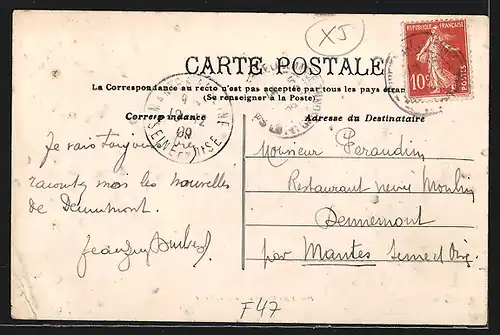 XJ
RÉPUBLIQUE FRANÇAISE
10c POSTES
CARTE POSTALE
La Correspondance au recto n'est pas acceptée par tous les pays étran
(Se renseigner à la Poste)
Correspondance
Adresse du Destinataire
SEINE ET OISE
09
Je vais toujours
racontez moi les nouvelles
de Dennemont.
Monsieur Peraudin
Restaurant Moulin
Dennemont
par Mantes Seine et Oise
F47